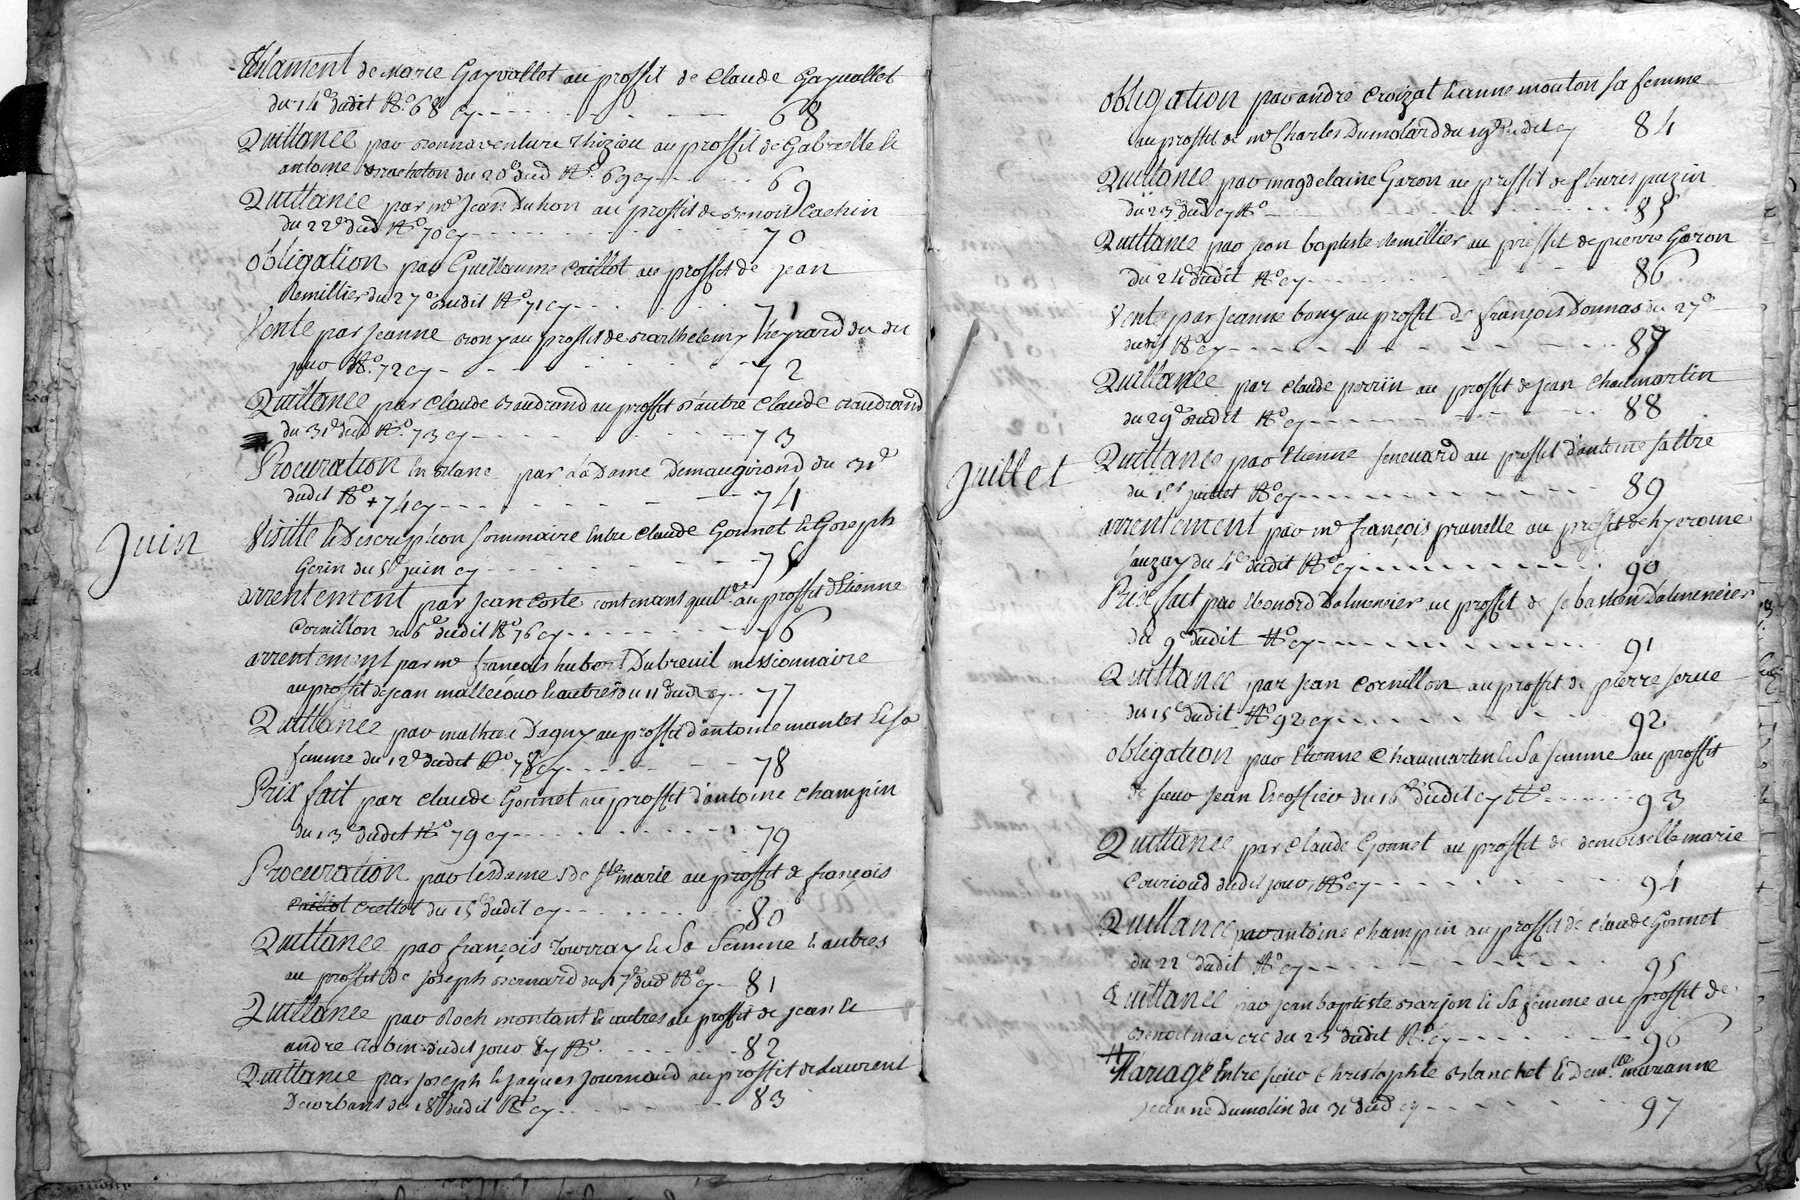 Testament de Marie Gayvallet au proffit de Claude Gayvallet
du 14e dudit No 68 cy 68
Quittance par Bonnaventure au proffit de Gabrielle &
antoine Bracheton du 20e dud No 69 cy 69
Quittance par me Jean Duhon au proffit de Benoit Cachin
du 22e dud No 70 cy 70
obligation par Guillaume Caillot au proffit de Jean
Remillier du 27e dudit No 71 cy 71
Vente par Jeanne Bony au proffit de Barthelemy Heyrard du du
jour No 72 cy 72
Quittance par Claude Baudrand au proffit d'autre Claude Baudrand
du 31e dud No 73 cy 73
Procuration En Blanc par La Dame Demaugirond du 31e
dudit No 74 cy 74
Juin
Visitte & Description sommaire Entre Claude Gonnet & Joseph
Gerin du 5e Juin cy 75
arrentement par Jean Coste contenant quitt.ce au proffit d'Etienne
Cornillon du 6e dudit No 76 cy 76
arrentement par me françois hubert Dubreuil missionnaire
au proffit de Jean & autres du 11e dud cy 77
Quittance par mathieu Dagny au proffit d'antoine mantet & sa
femme du 12e dudit No 78 cy 78
Prix fait par Claude Gonnet au proffit d'antoine Champin
du 13e dudit No 79 cy 79
Procuration par les dames de Ste marie au proffit de françois
Caillot Crettot du 15 dudit cy 80
Quittance par françois Tourray & Sa Femme & autres
au proffit de Joseph Bernard du 17e dud No cy 81
Quittance par Roch montant & autres au proffit de Jean &
andre Robin dudit jour cy No 82
Quittance par Joseph & Jaques Journoud au proffit de Laurent
Deorbans du 18e dudit No cy 83
obligation par andre Croizat & anne mouton sa femme
au proffit de me Charles Dumolard du 19e dudit cy 84
Quittance par magdelaine Garon au proffit de fleuris puzin
du 23e dud cy No 85
Quittance par Jean baptiste Remillier au proffit de pierre Garon
du 24e dudit No cy 86
Vente par Jeanne bony au proffit de françois Donnas du 27e
dudit No cy 87
Quittance par Claude perriin au proffit de Jean Chaumartin
du 29e dudit No cy 88
Juillet
Quittance par Etienne senevard au proffit d'antoine sattre
du 1er juillet No cy 89
arrentement par me françois prunelle au proffit de hyerome
Lauzay du 4e dudit No cy 90
Prix fait par Eleonord Dalmeneier au proffit de sebastien Dalmeneier
du 9e dudit No cy 91
Quittance par Jean Cornillon au proffit de pierre serue
du 15e dudit No 92 cy 92
obligation par Etienne Chaumartin & Sa femme au proffit
de sieur Jean Escoffier du 16e dudit cy No 93
Quittance par Claude Gonnet au proffit de demoiselle marie
Courioud dudit jour No cy 94
Quittance par antoine Champin au proffit de Claude Gonnet
du 22 dudit No cy 95
Quittance par Jean baptiste Barjon & Sa femme au proffit de
Benoit mayere du 25 dudit No cy 96
Mariage Entre sieur Christophle Blanchet & Dem.lle marianne
Jeanne Dumolin du 31 dud cy 97